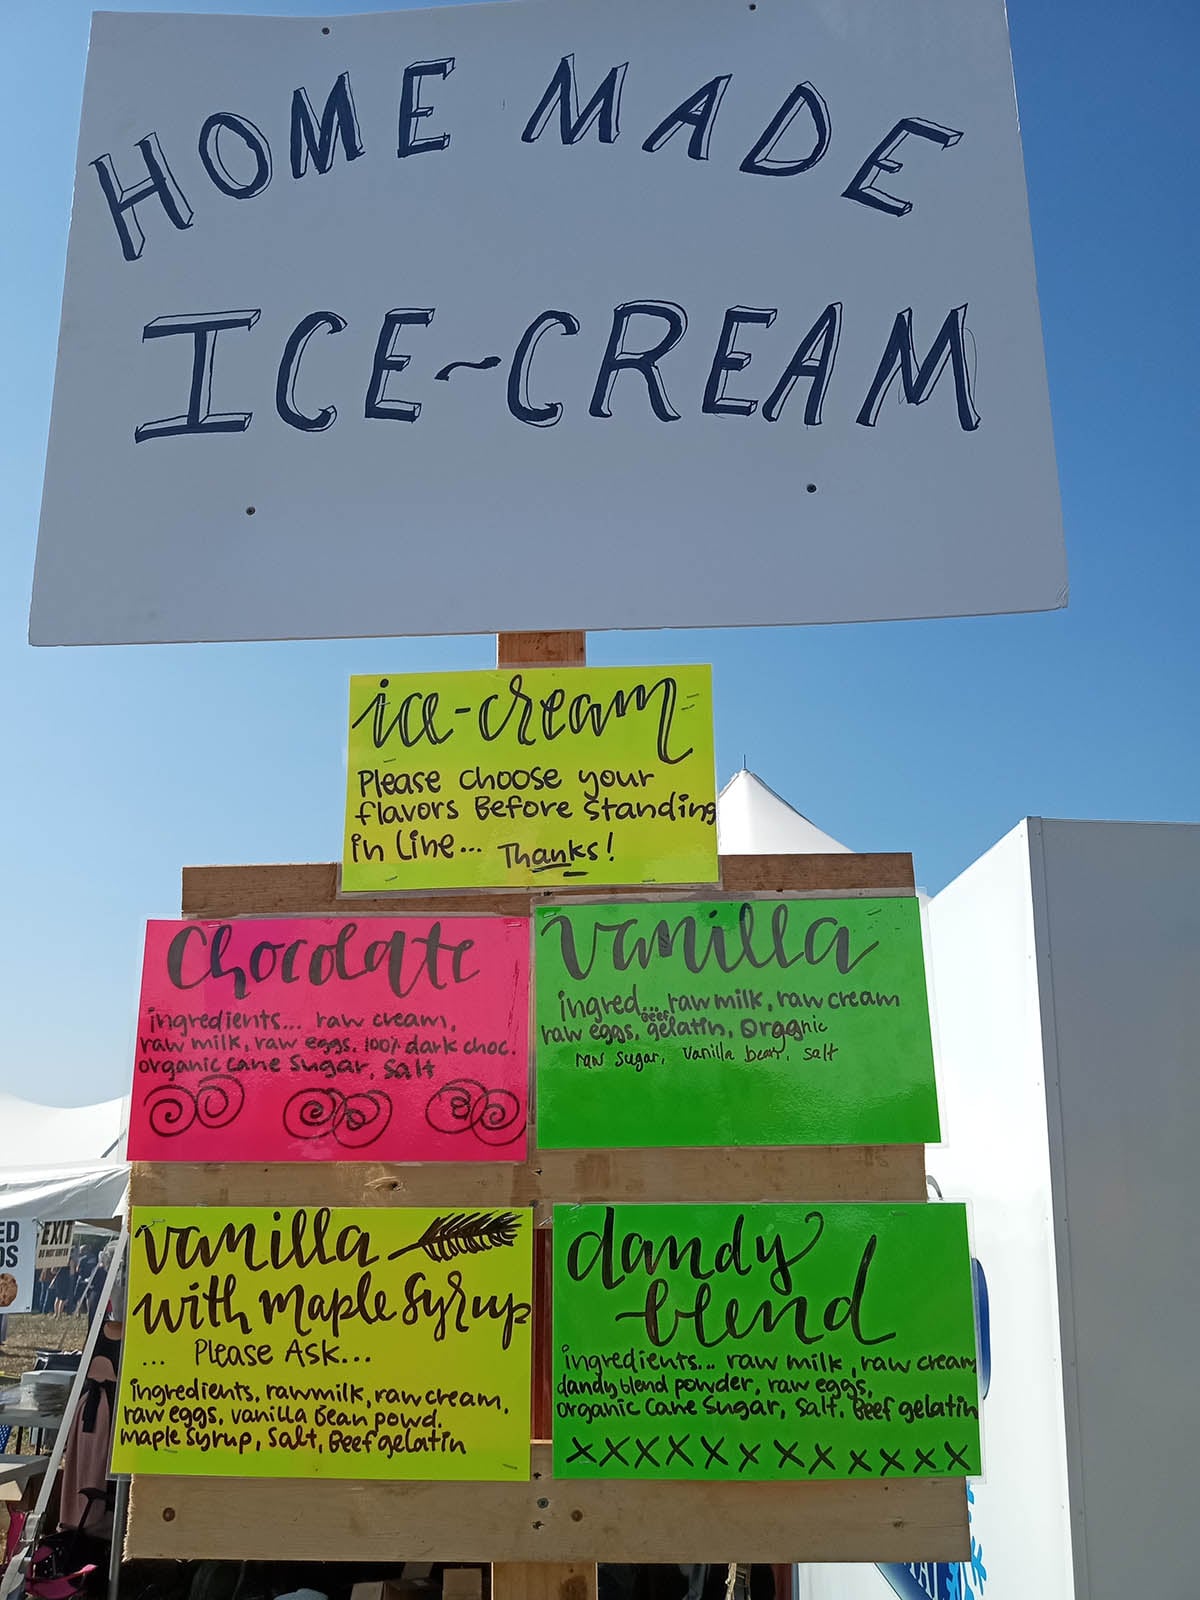 HOME MADE
ICE~CREAM
ice-cream
Please choose your
flavors Before standing
in Line... Thanks!
Chocolate
ingredients... raw cream,
raw milk, raw eggs, 100% dark choc.
organic cane sugar, salt
vanilla
ingred... raw milk, raw cream
raw eggs, Beef gelatin, organic
raw sugar, vanilla bean, salt
vanilla
with maple syrup
... Please Ask...
ingredients, raw milk, raw cream,
raw eggs, vanilla Bean powd.
maple syrup, salt, Beef gelatin
dandy
blend
ingredients... raw milk, raw cream
dandy blend powder, raw eggs,
organic cane sugar, salt, Beef gelatin
xxxxxxxxxxxx
EXIT